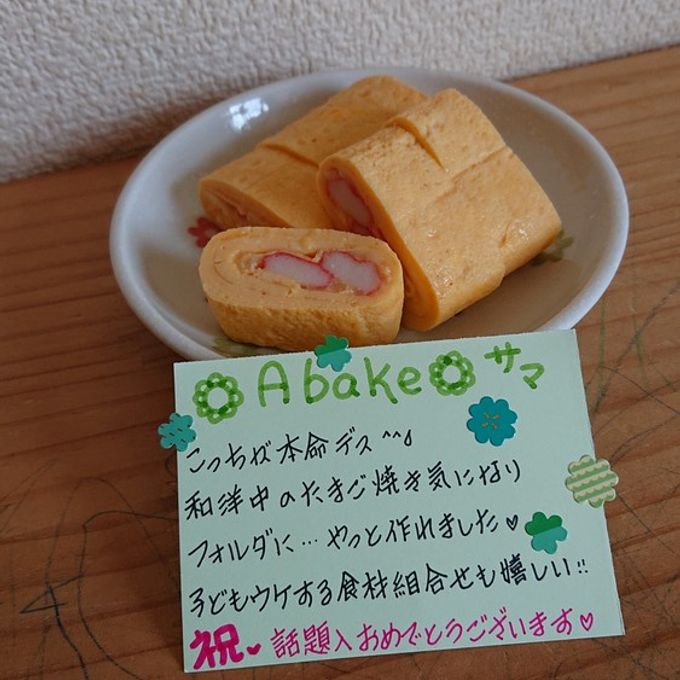 Abake サマ
こっちが本命デス^^♪
和洋中のたまご焼き気になり
フォルダに…やっと作れました♥
子どもウケする食材組合せも嬉しい!!
祝♥話題入おめでとうございます♥